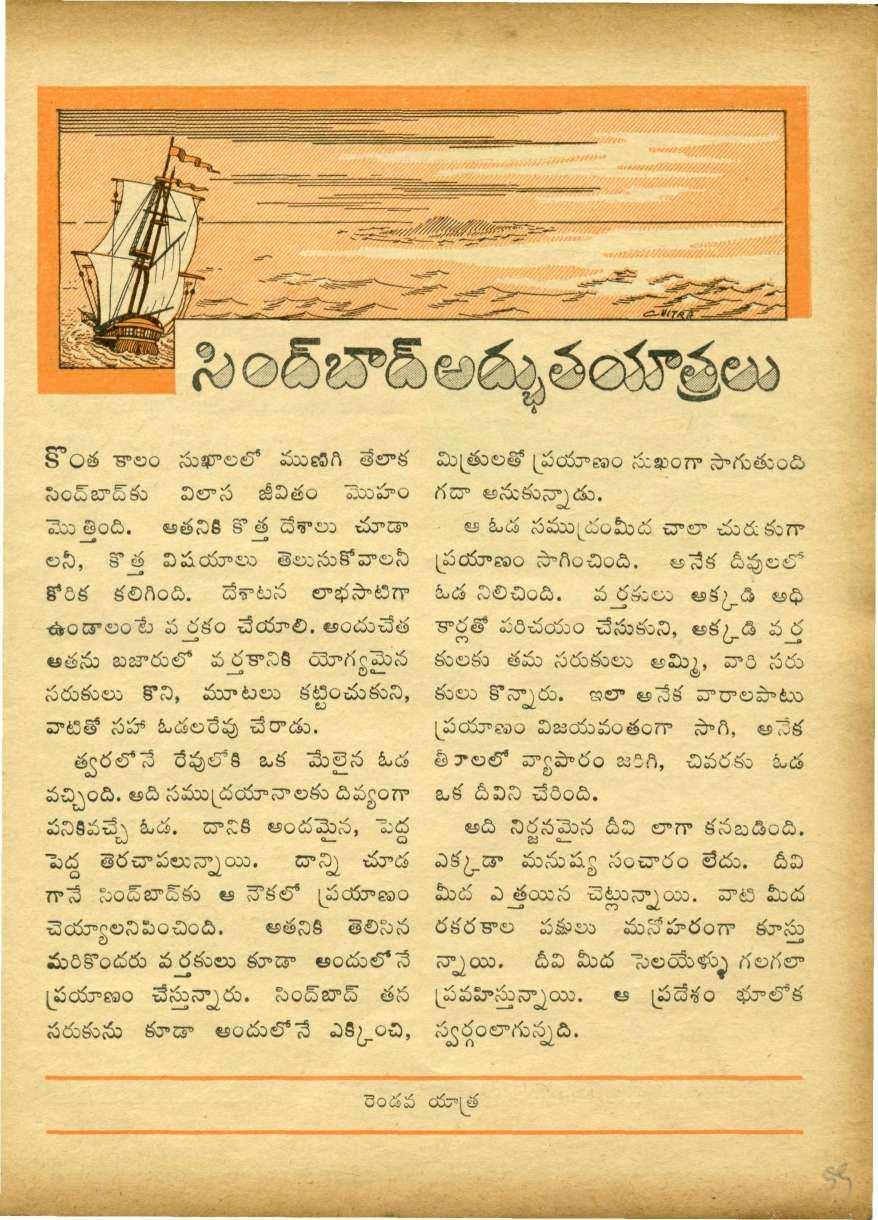 CHITRA
సింద్‌బాద్ అద్భుతయాత్రలు
కొంత కాలం సుఖాలలో ముణిగి తేలాక
సింద్‌బాద్‌కు విలాస జీవితం మొహం
మొత్తింది. అతనికి కొత్త దేశాలు చూడా
లనీ, కొత్త విషయాలు తెలుసుకోవాలనీ
కోరిక కలిగింది. దేశాటన లాభసాటిగా
ఉండాలంటే వర్తకం చేయాలి. అందుచేత
అతను బజారులో వర్తకానికి యోగ్యమైన
సరుకులు కొని, మూటలు కట్టించుకుని,
వాటితో సహా ఓడలరేవు చేరాడు.
త్వరలోనే రేవులోకి ఒక మేలైన ఓడ
వచ్చింది. అది సముద్రయానాలకు దివ్యంగా
పనికివచ్చే ఓడ. దానికి అందమైన, పెద్ద
పెద్ద తెరచాపలున్నాయి. దాన్ని చూడ
గానే సింద్‌బాద్‌కు ఆ నౌకలో ప్రయాణం
చెయ్యాలనిపించింది. అతనికి తెలిసిన
మరికొందరు వర్తకులు కూడా అందులోనే
ప్రయాణం చేస్తున్నారు. సింద్‌బాద్ తన
సరుకును కూడా అందులోనే ఎక్కించి,
మిత్రులతో ప్రయాణం సుఖంగా సాగుతుంది
గదా అనుకున్నాడు.
ఆ ఓడ సముద్రంమీద చాలా చురుకుగా
ప్రయాణం సాగించింది. అనేక దీవులలో
ఓడ నిలిచింది. వర్తకులు అక్కడి అధి
కార్లతో పరిచయం చేసుకుని, అక్కడి వర్త
కులకు తమ సరుకులు అమ్మి, వారి సరు
కులు కొన్నారు. ఇలా అనేక వారాలపాటు
ప్రయాణం విజయవంతంగా సాగి, అనేక
తీరాలలో వ్యాపారం జరిగి, చివరకు ఓడ
ఒక దీవిని చేరింది.
అది నిర్జనమైన దీవి లాగా కనబడింది.
ఎక్కడా మనుష్య సంచారం లేదు. దీవి
మీద ఎత్తయిన చెట్లున్నాయి. వాటి మీద
రకరకాల పక్షులు మనోహరంగా కూస్తు
న్నాయి. దీవి మీద సెలయేళ్ళు గలగలా
ప్రవహిస్తున్నాయి. ఆ ప్రదేశం భూలోక
స్వర్గంలాగున్నది.
రెండవ యాత్ర